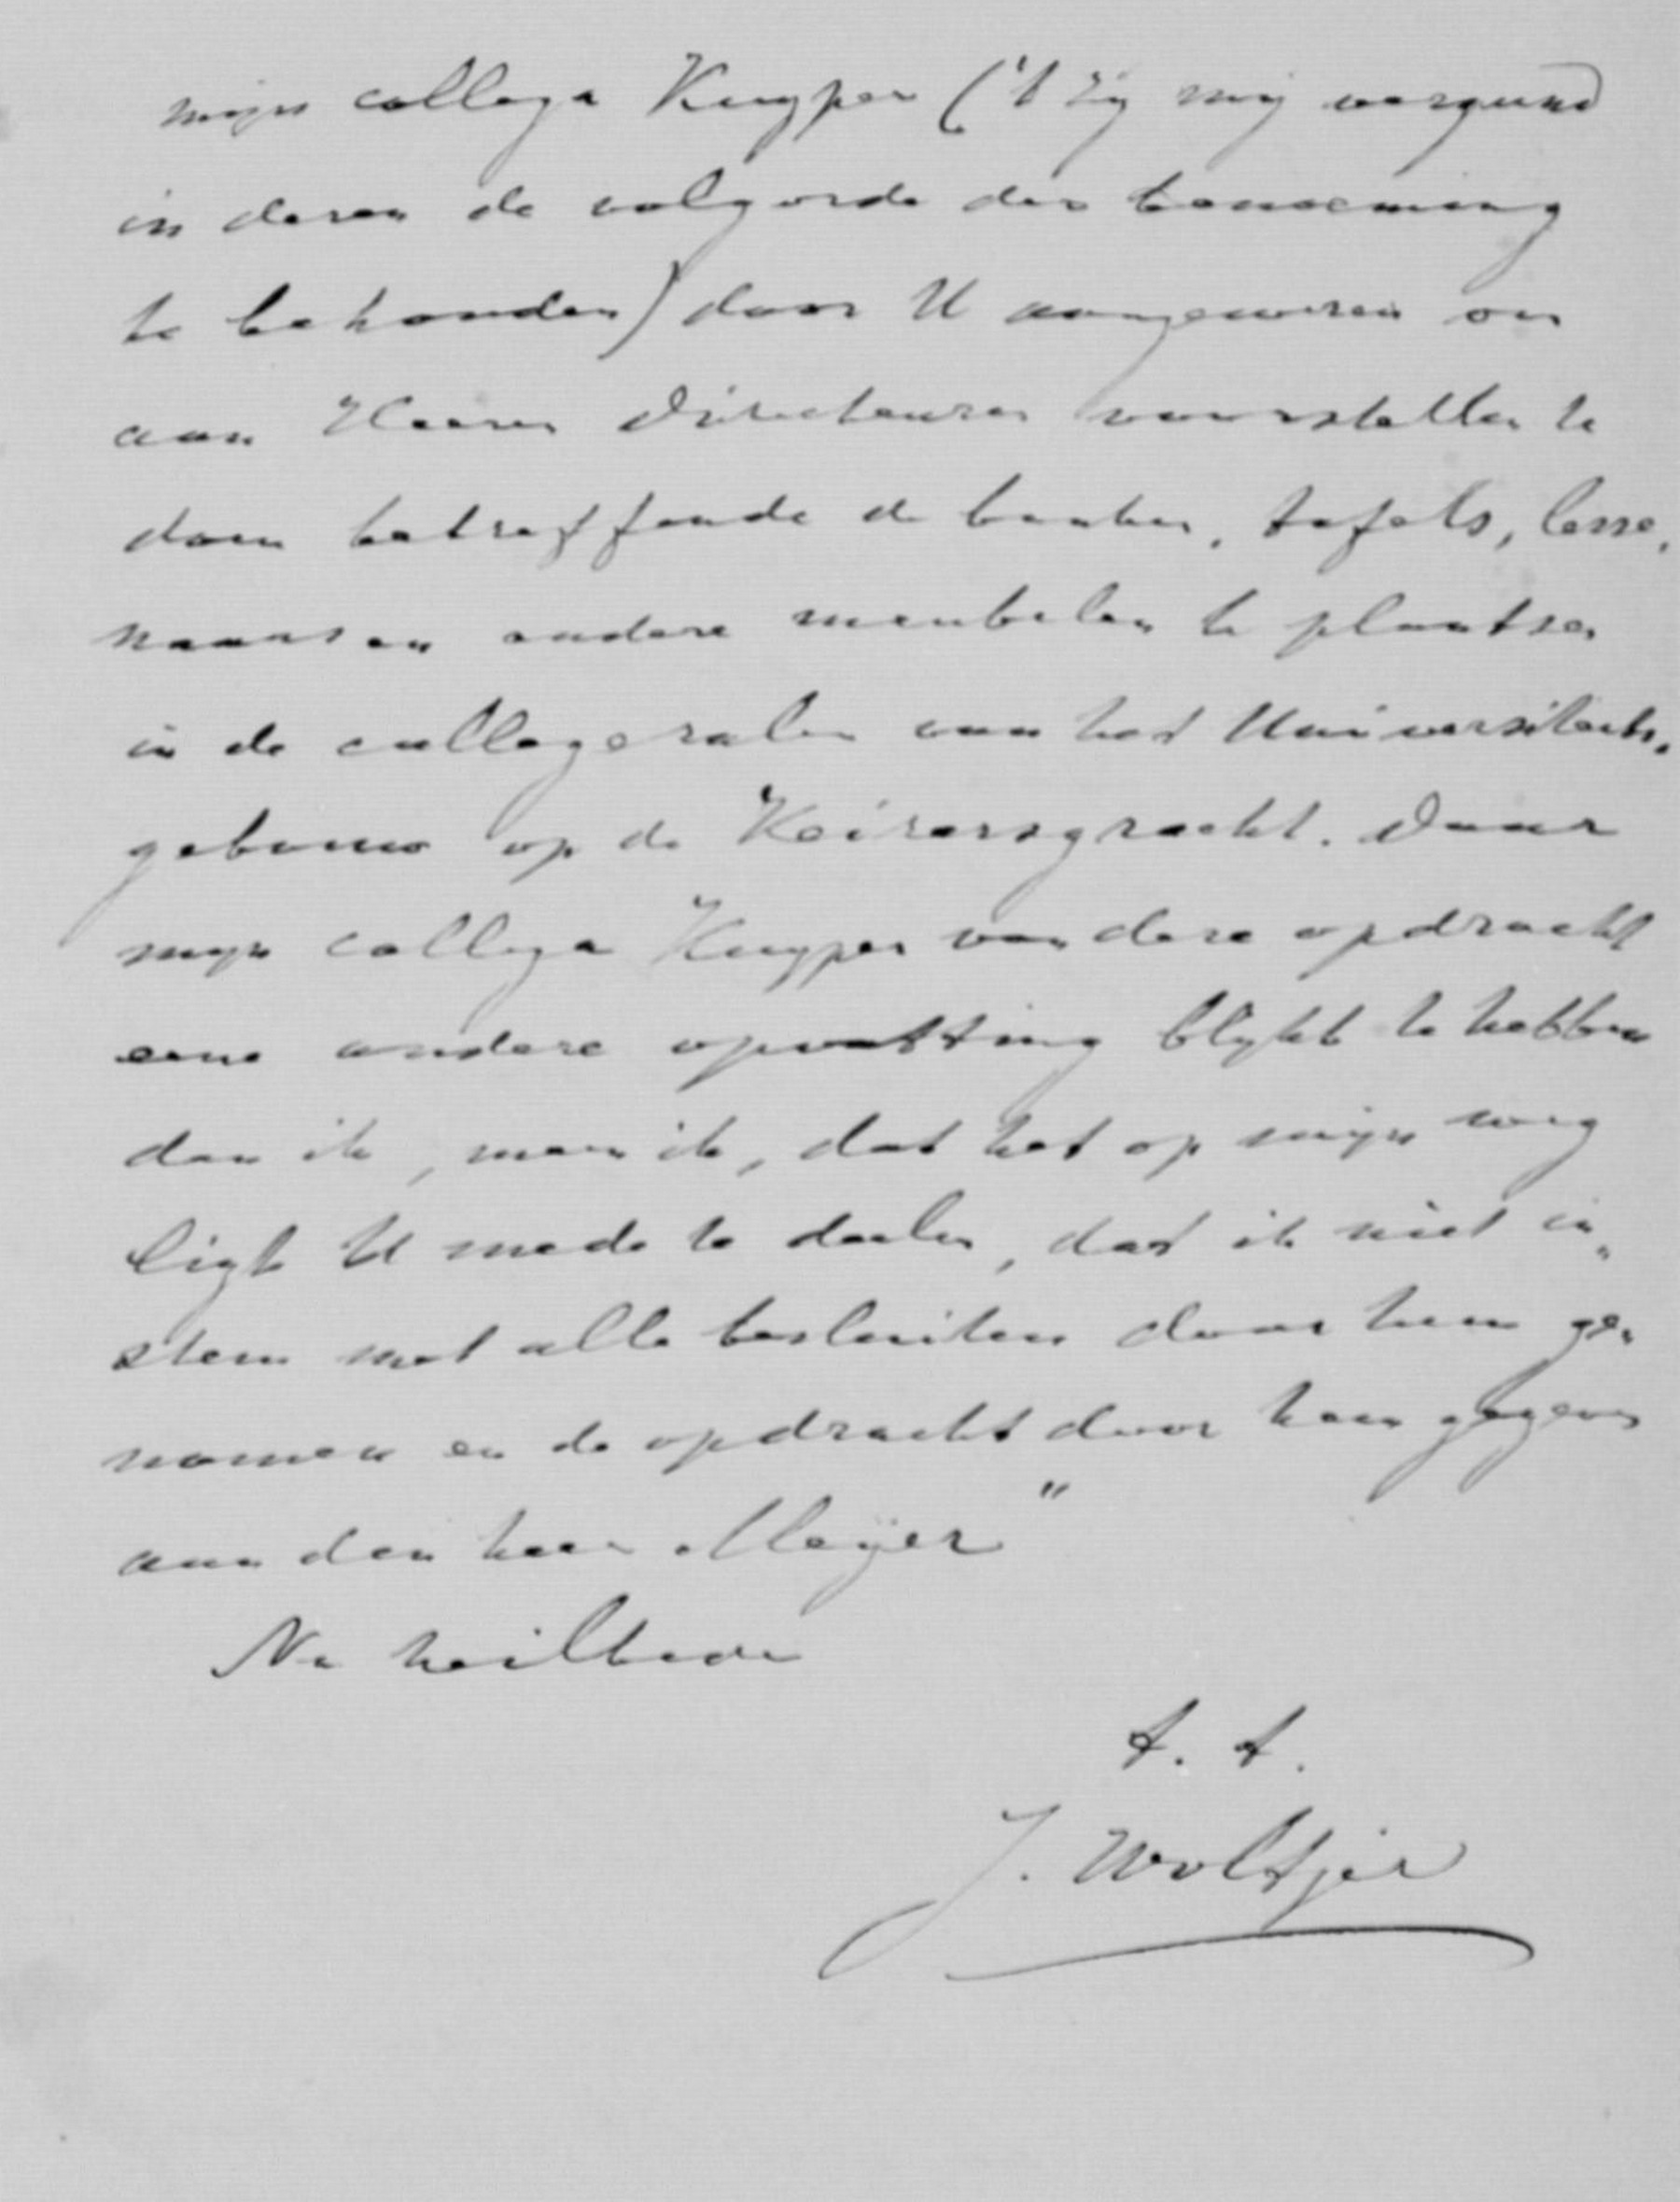 mijn collega Kuyper ('t zij mij vergund
in dezen de volgorde der benoeming
te behouden) door U aangewezen om
aan Heeren Directeuren voorstellen te
doen betreffende de banken, tafels, lesse„
naars en andere meubelen te plaatsen
in de collegezalen van het Universiteits„
gebouw op de Keizersgracht. Daar
mijn collega Kuyper van deze opdracht
eene andere opvatting blijkt te hebben
dan ik, meen ik, dat het op mijn weg
ligt U mede te deelen, dat ik niet in„
stem met alle besluiten door hem ge„
nomen en de opdracht door hem gegeven
aan den heer Meÿer"
Na heilbede
t. t.
J. Woltjer